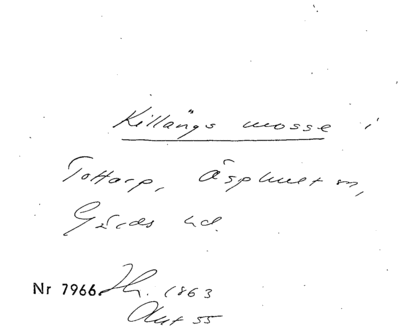 Killängs mosse i
Tottarp, Äsphult sn,
Gärds hd.
Nr 7966. Ih. 1863
Aut 55